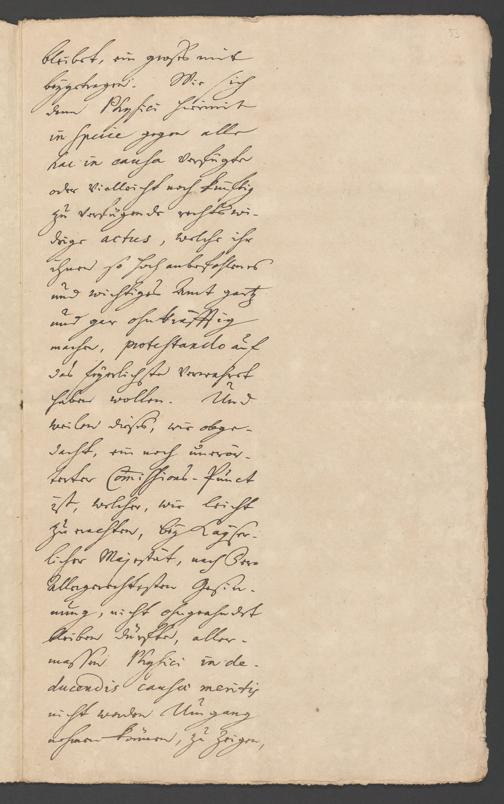 bleibet, ein großes mit
beygetragen. Wie sich
denn Physici hiermit
in specie gegen alle
hac in causa verfügte
oder vielleicht noch künftig
zu verfügende rechtswi-
drige actus, welche ihr
ihnen so hoch anbefohlenes
und wichtiges Amt gantz
und gar ohnkräfftig
machen, protestando auf
das feyerlichste verwahret
haben wollen. Und
weilen dieses, wie obge-
dacht, ein noch unerör-
terter Comissions-Punct
ist, welcher, wie leicht
zu erachten, bey Kayser-
licher Majestät, nach Dero
allergerechtesten Gesin-
nung, nicht ohngeahndet
bleiben dürfte, aller-
massen Physici in de-
ducendis causæ meritis
nicht werden Umgang
nehmen können, zu zeigen,